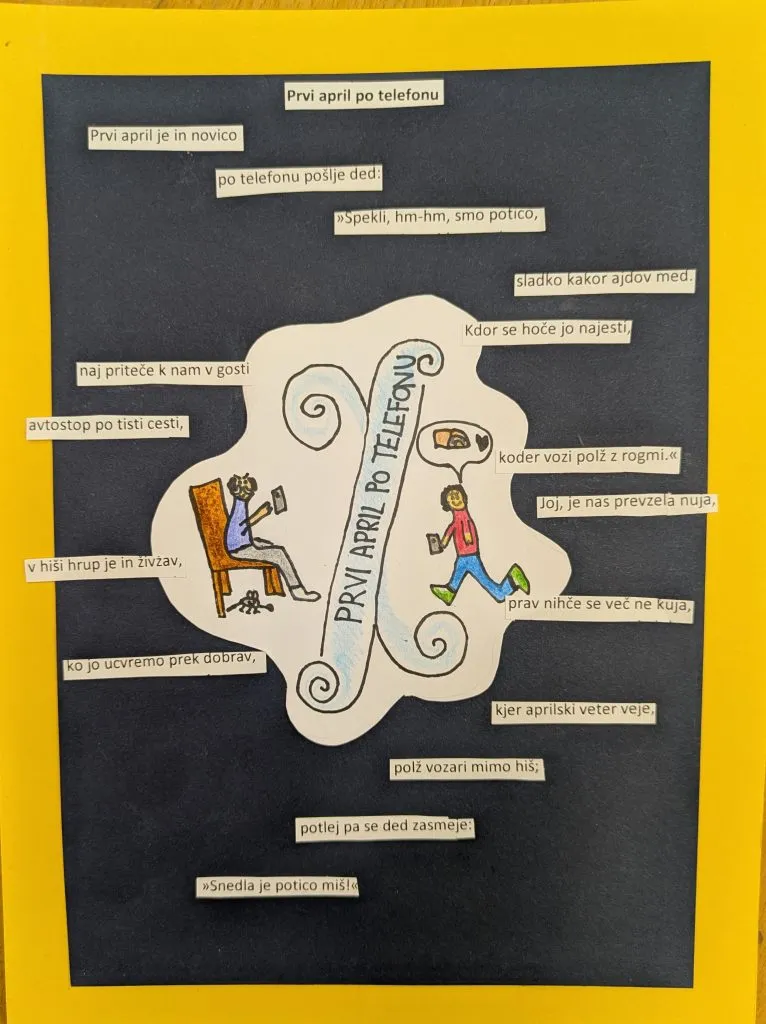 Prvi april po telefonu
Prvi april je in novico
po telefonu pošlje ded:
»Spekli, hm-hm, smo potico,
sladko kakor ajdov med.
Kdor se hoče jo najesti,
naj priteče k nam v gosti
avtostop po tisti cesti,
koder vozi polž z rogmi.«
Joj, je nas prevzela nuja,
v hiši hrup je in živžav,
prav nihče se več ne kuja,
ko jo ucvremo prek dobrav,
kjer aprilski veter veje,
polž vozari mimo hiš;
potlej pa se ded zasmeje:
»Snedla je potico miš!«
PRVI APRIL PO TELEFONU